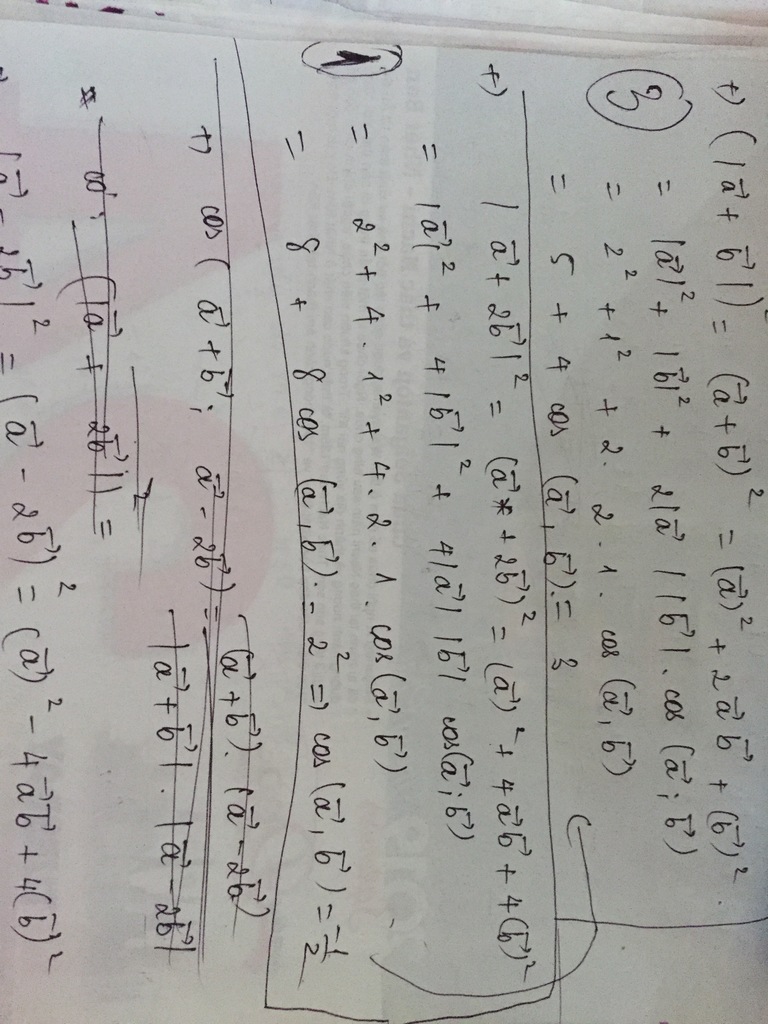 +) (|a⃗ + b⃗|)² = (a⃗ + b⃗)² = (a⃗)² + 2a⃗b⃗ + (b⃗)²
③ = |a⃗|² + |b⃗|² + 2|a⃗||b⃗|. cos (a⃗; b⃗)
= 2² + 1² + 2. 2. 1. cos (a⃗, b⃗)
= 5 + 4 cos (a⃗, b⃗) = 3
+) |a⃗ + 2b⃗|² = (a⃗ + 2b⃗)² = (a⃗)² + 4a⃗b⃗ + 4(b⃗)²
= |a⃗|² + 4|b⃗|² + 4|a⃗||b⃗| cos(a⃗; b⃗)
① = 2² + 4. 1² + 4. 2. 1. cos(a⃗, b⃗)
= 8 + 8 cos (a⃗, b⃗) = 2² => cos (a⃗, b⃗) = -1/2
+) cos( a⃗ + b⃗; a⃗ - 2b⃗) = (a⃗ + b⃗). (a⃗ - 2b⃗)
|a⃗ + b⃗| . |a⃗ - 2b⃗|
(|a⃗ + 2b⃗|) =
|a⃗ - 2b⃗|² = (a⃗ - 2b⃗)² = (a⃗)² - 4a⃗b⃗ + 4(b⃗)²